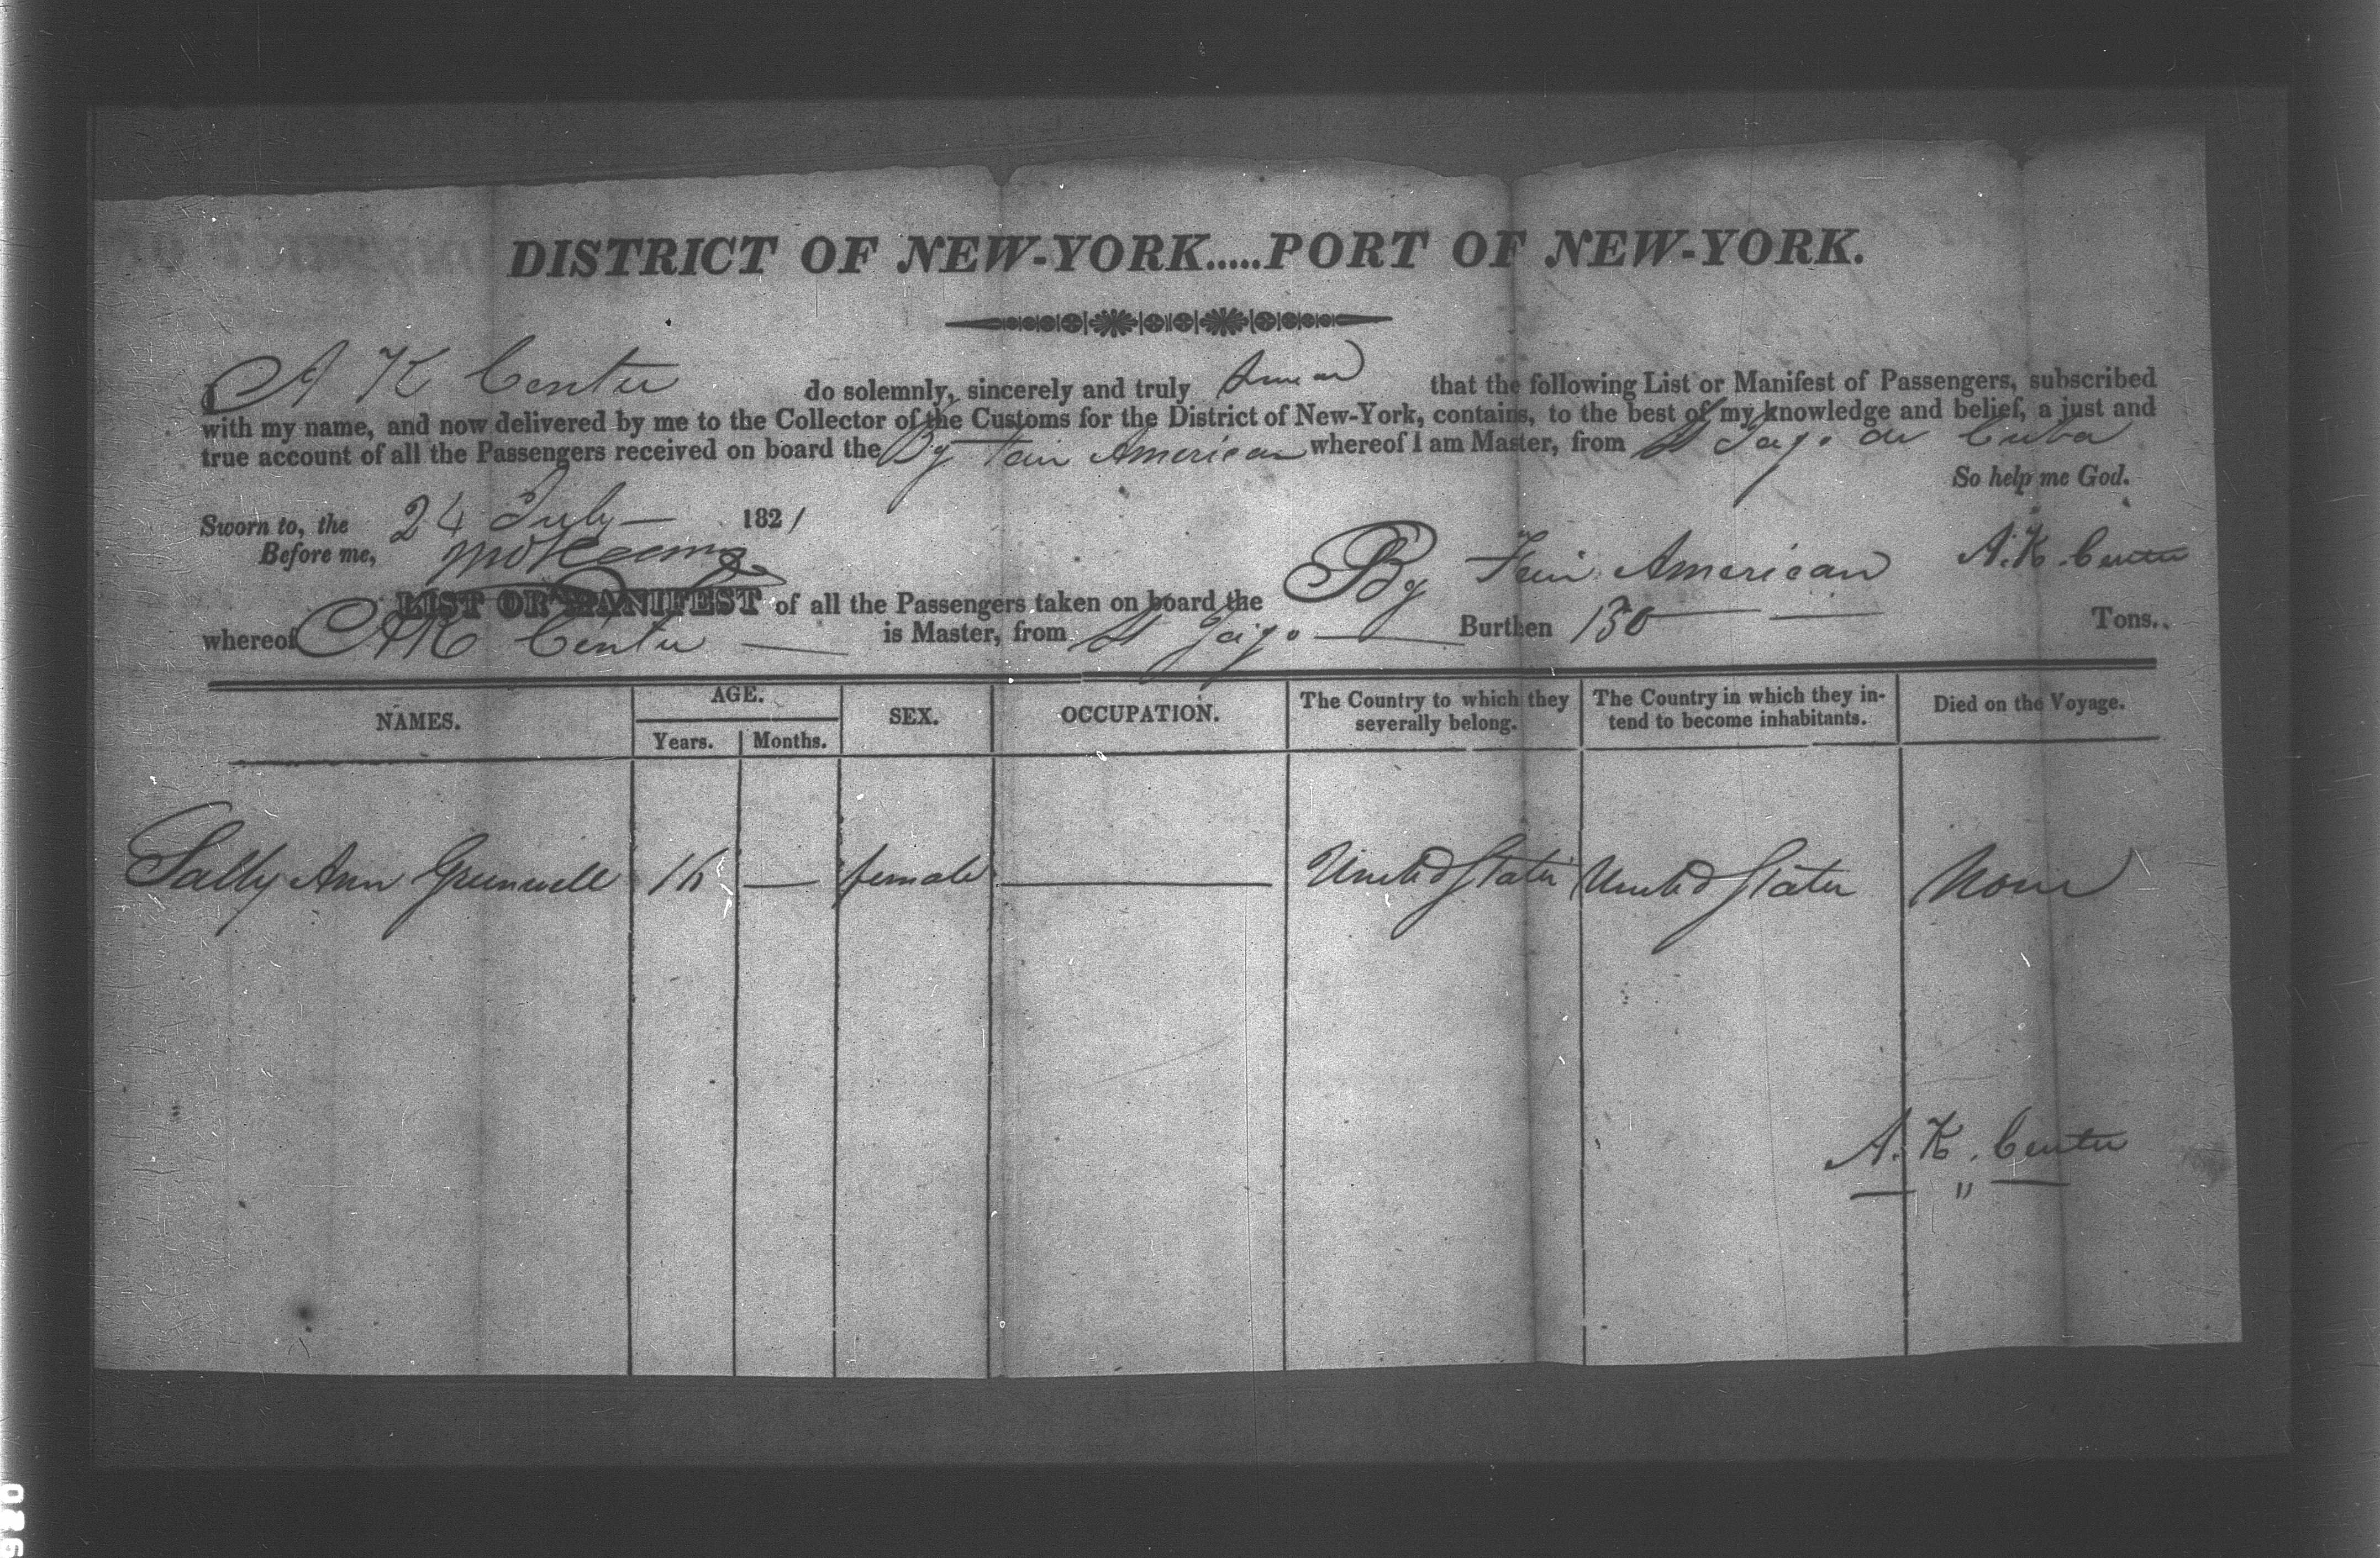 DISTRICT OF NEW-YORK.....PORT OF NEW-YORK.
I A K Center do solemnly, sincerely and truly swear that the following List or Manifest of Passengers, subscribed
with my name, and now delivered by me to the Collector of the Customs for the District of New-York, contains, to the best of my knowledge and belief, a just and
true account of all the Passengers received on board the Bg Fair American whereof I am Master, from St Jago de Cuba
So help me God.
Sworn to, the 24 July 1821
Before me,
A. K. Center
LIST OR MANIFEST of all the Passengers taken on board the Bg Fair American
whereof A K Center is Master, from St Jago Burthen 130 Tons.
NAMES. AGE. SEX. OCCUPATION. The Country to which they severally belong. The Country in which they intend to become inhabitants. Died on the Voyage.
Years. Months.
Sally Ann Greenwell 16 — female — United States United States None
A. K. Center